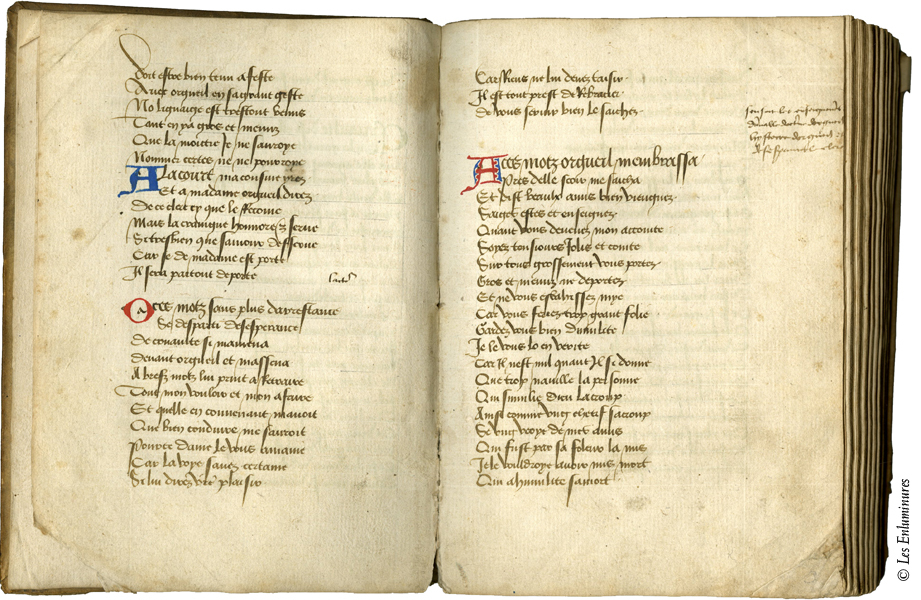 Doit estre bien tenu a feste
Avec orgueil en sa grant geste
No lignaige est trestout venus
Tant en y a gros et menuz
Que la moictie je ne sauroye
Nommer certes ne ne pourroye
A la court ma cousine yrez
Et a madame orgueil direz
De ce clerc cy que le
Mais la craingne honnore et serve
Si tresbien que samour desserve
Car se de madame est porte
Il sera partout deporte
A ces motz sans plus darrestance
Se desparti desesperance
De convaulte si mamena
Devant orgueil et massena
A brefz motz lui print a retraire
Tout mon vouloir et mon afaire
Et quelle en convenant mavoit
Que bien conduire me sauroit
Pource dame le vous amaine
Car la voye savez certaine
Si lui direz vostre plaisir
Car Riens ne lui devez taisir
Il est tout prest de
De vous servir bien le saichez
A ces motz orgueil membrassa
Pres delle seoir me
Et dist beaulx amis bien viengnez
Saiges estes et enseignez
Quant vous devenez mon acointe
Soyez tousiours Jolis et cointe
Sur tous grossement vous portez
Gros et menuz ne deportez
Et ne vous esbahissez mye
Car vous feriez trop grant folie
Gardez vous bien dumilite
Je le vous lo en verite
Car Il nest nul quant Il si donne
Que trop naville la personne
Qui sumilie Dieu lacroup
Ainsi comme ung chetif sacroup
Se ung voye de met avis
Qui fust par sa foleur la mis
Je le vouldroye avoir mis mort
Qui a humilite samort
© Les Enluminures